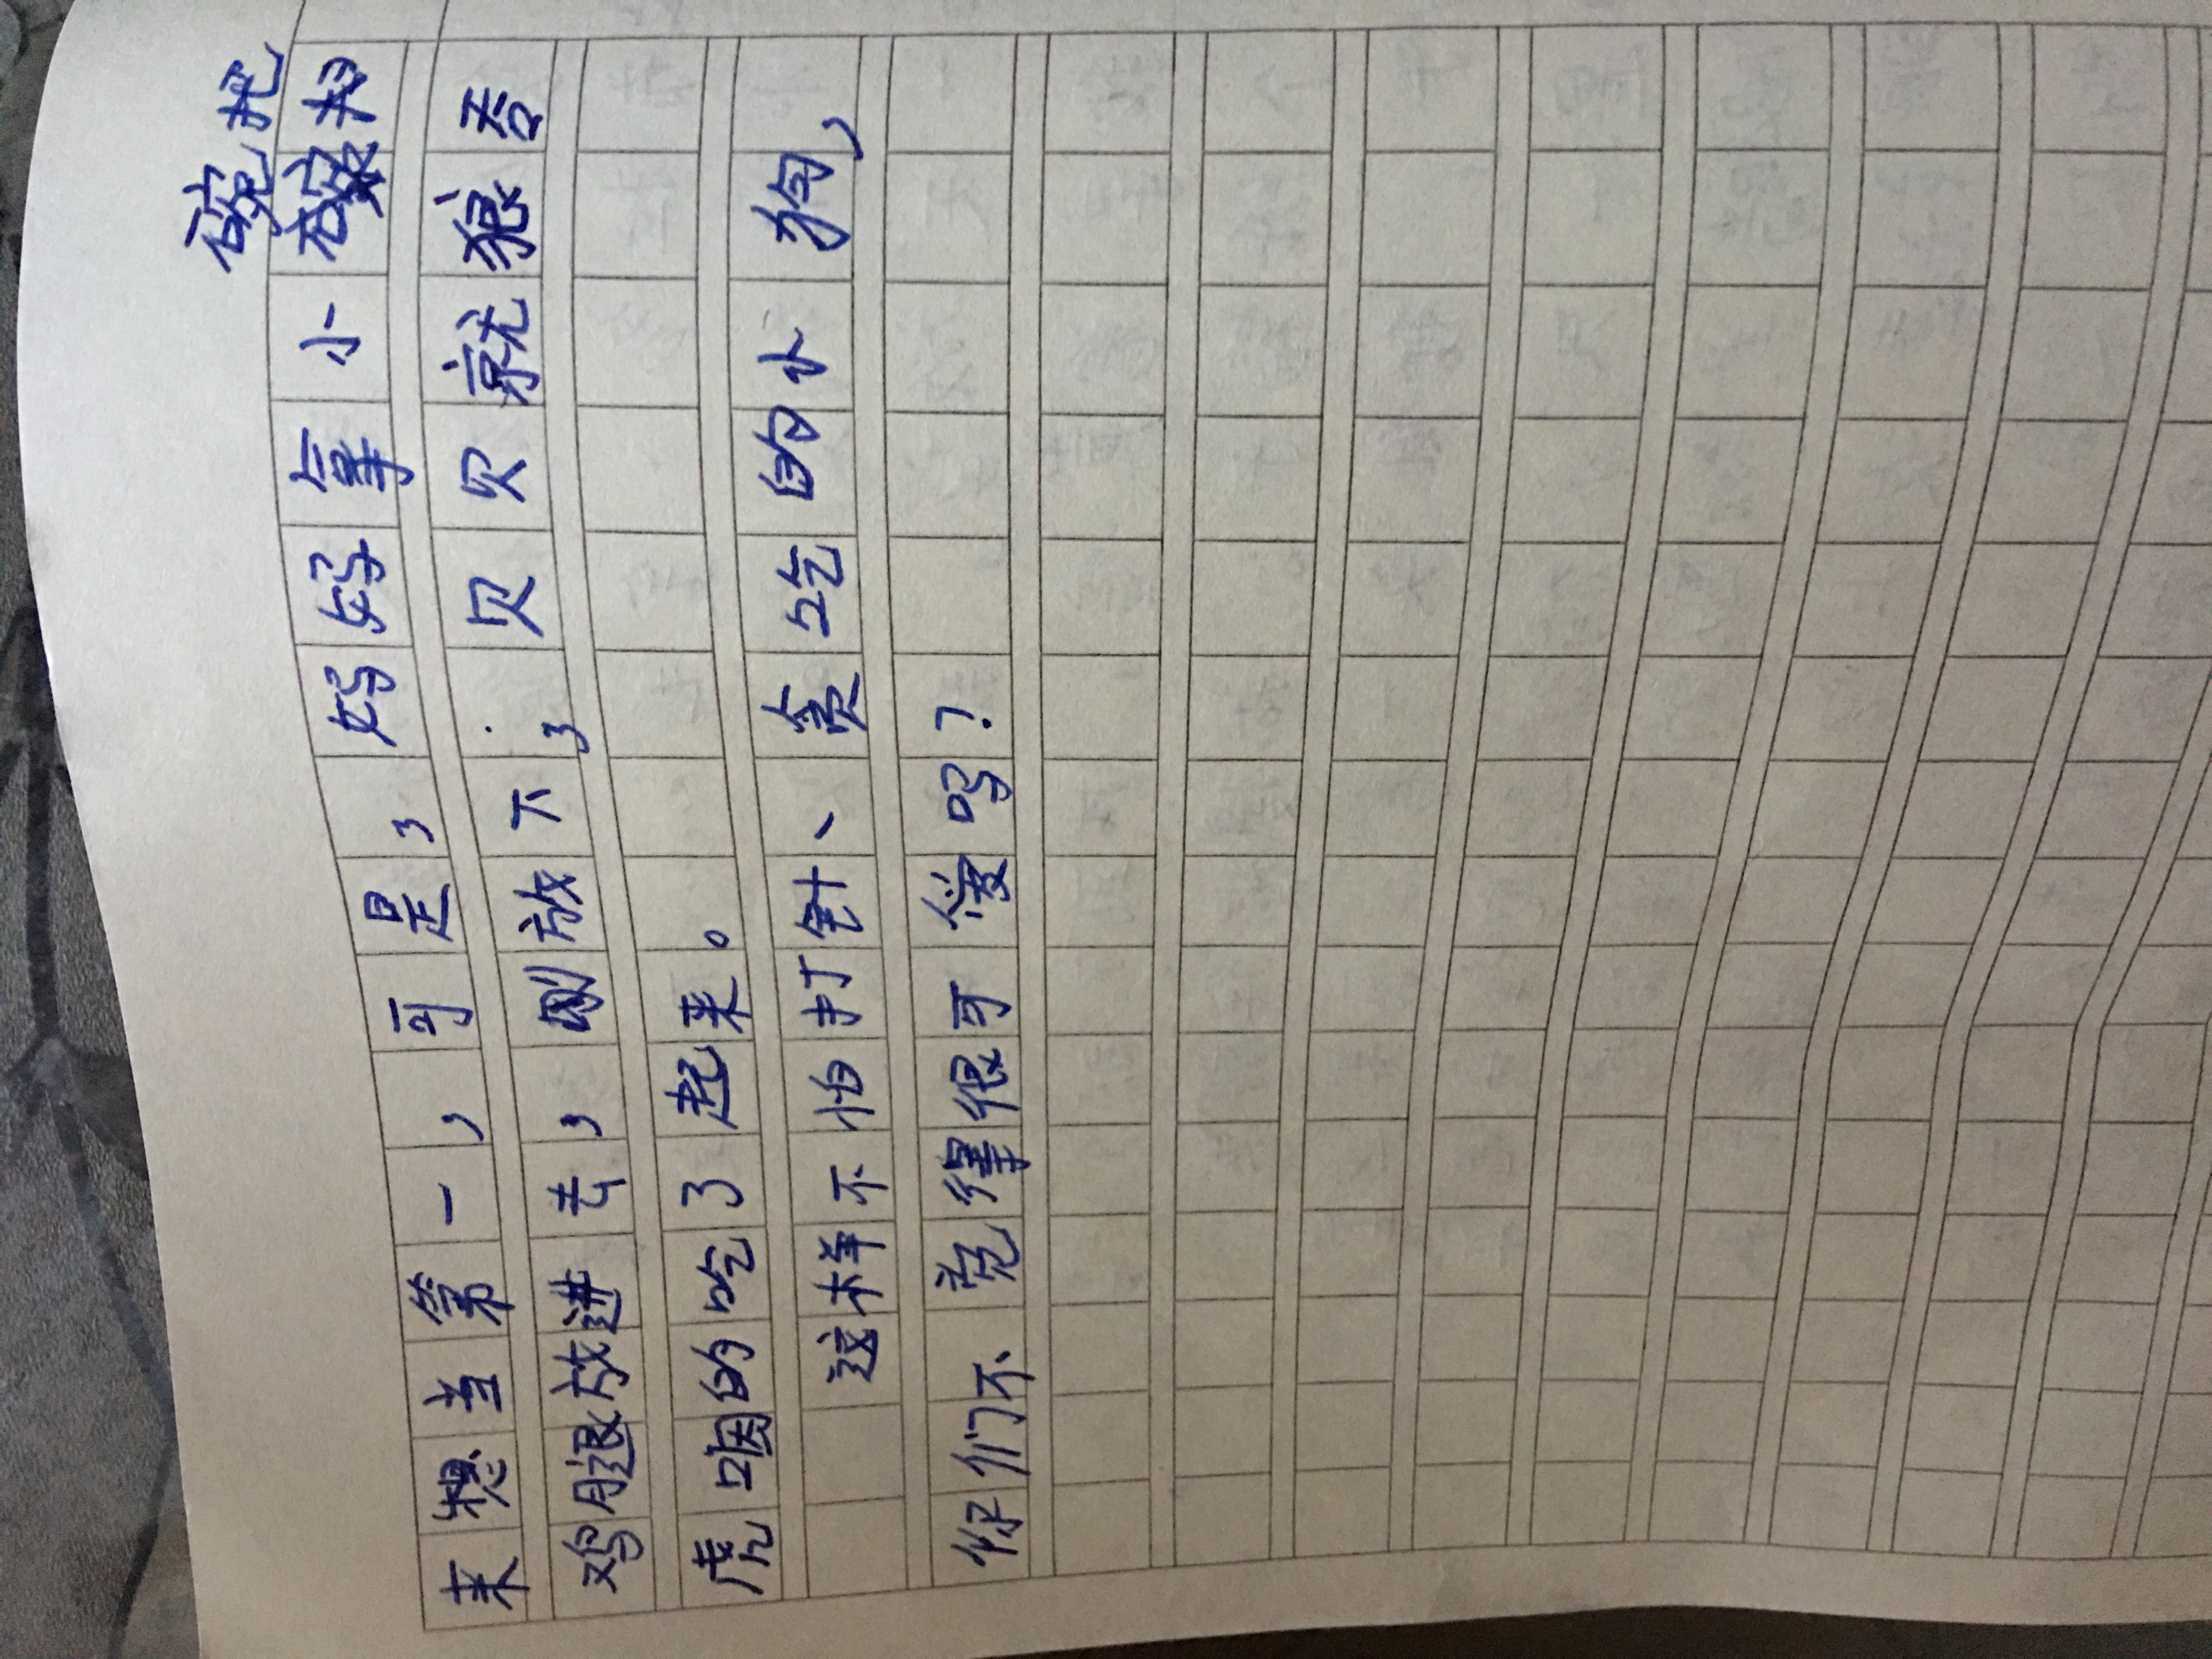 来想当第一,可是,妈妈拿小碗把
鸡腿放进去,刚放下,贝贝就狼吞
虎咽的吃了起来。
这样不怕打针、贪吃的小狗,
你们不觉得很可爱吗?